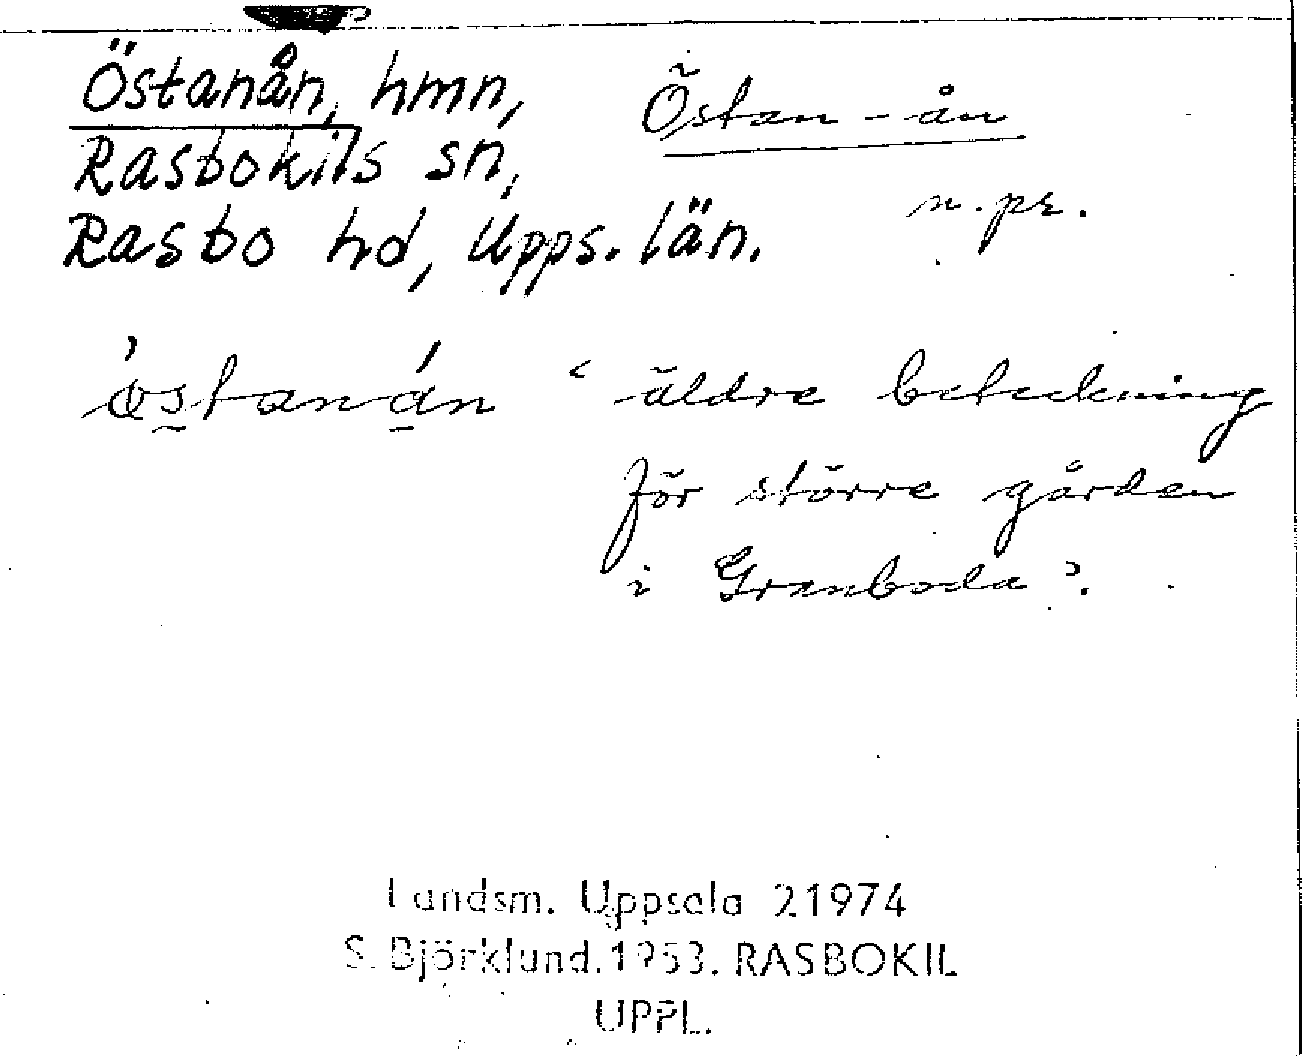 Östanån, hmn,
Rasbokils sn,
Rasbo hd, Upps. län.
Östan-ån
n. pr.
östanán
‘äldre beteckning
för större gården
i Granboda’.
Landsm. Uppsala 21974
S. Björklund. 1953. RASBOKIL
UPPL.